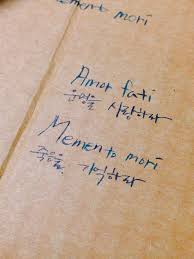 Memento mori
Amor fati
운명을 사랑하라
Memento mori
죽음을 기억하라